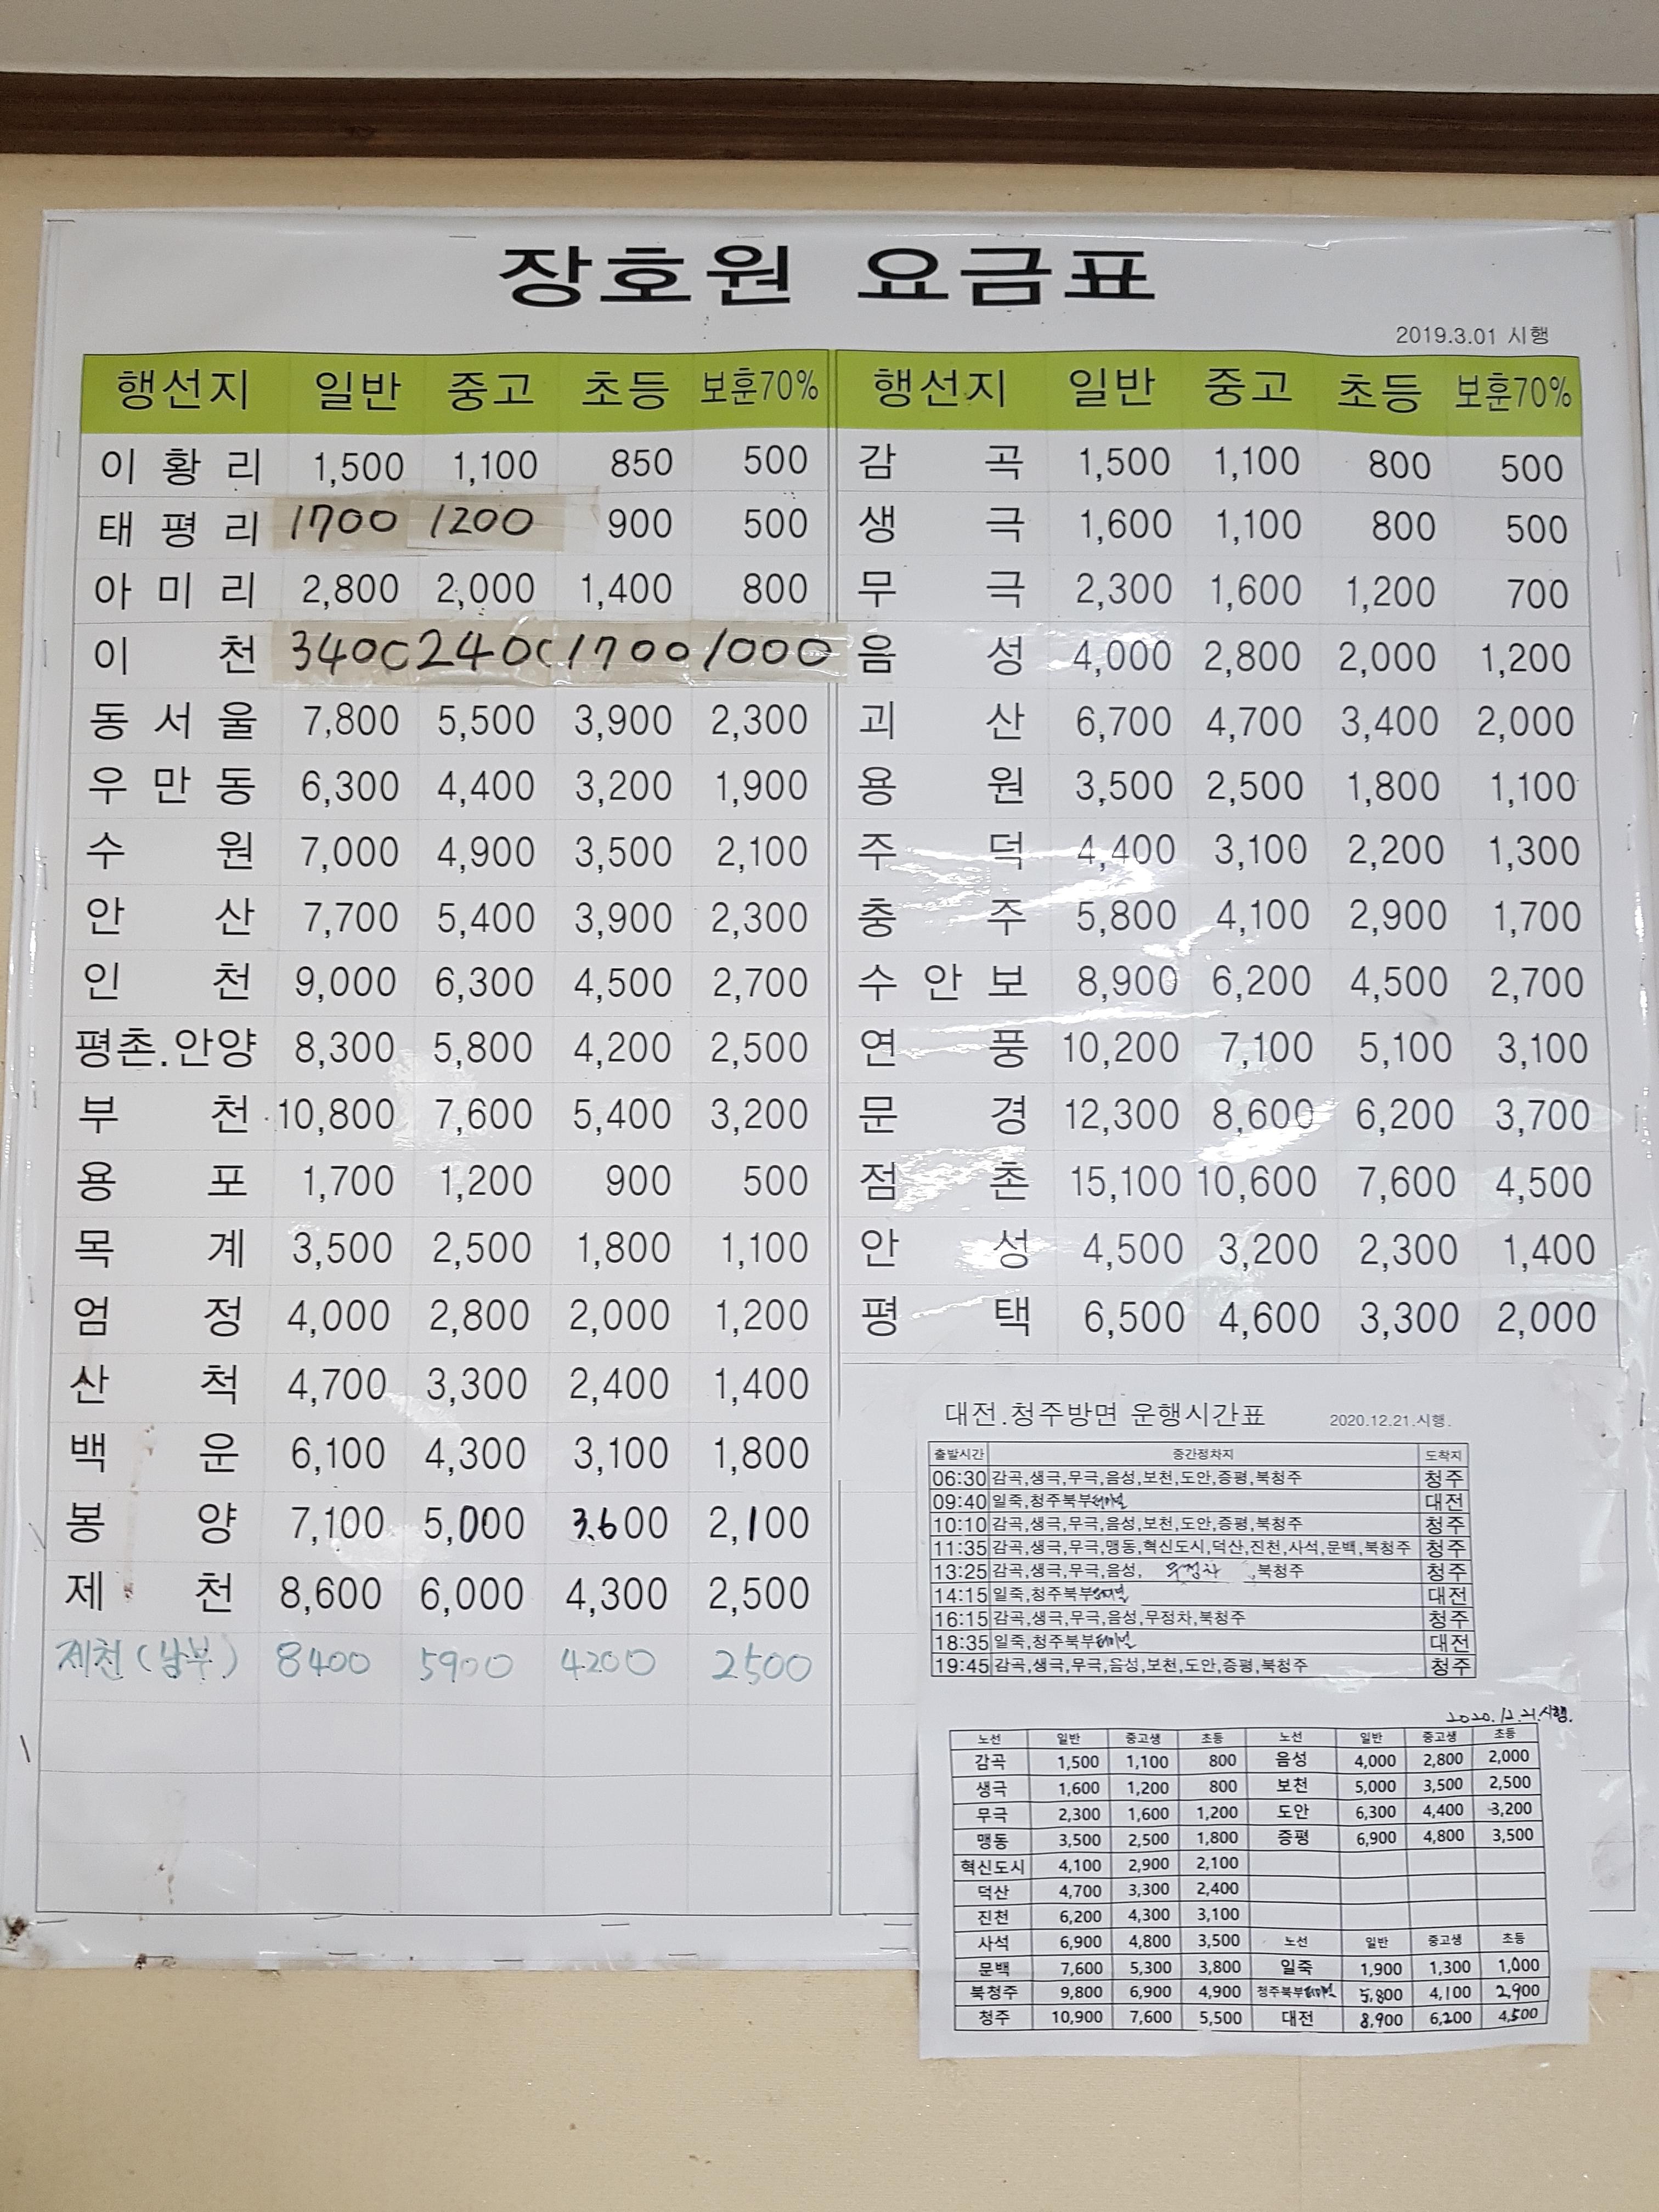 장호원 요금표
2019.3.01 시행
행선지 일반 중고 초등 보훈70%
이황리 1,500 1,100 850 500
태평리 1700 1200 900 500
아미리 2,800 2,000 1,400 800
이천 3400 2400 1700 1000
동서울 7,800 5,500 3,900 2,300
우만동 6,300 4,400 3,200 1,900
수원 7,000 4,900 3,500 2,100
안산 7,700 5,400 3,900 2,300
인천 9,000 6,300 4,500 2,700
평촌.안양 8,300 5,800 4,200 2,500
부천 10,800 7,600 5,400 3,200
용포 1,700 1,200 900 500
목계 3,500 2,500 1,800 1,100
엄정 4,000 2,800 2,000 1,200
산척 4,700 3,300 2,400 1,400
백운 6,100 4,300 3,100 1,800
봉양 7,100 5,000 3.600 2,100
제천 8,600 6,000 4,300 2,500
제천(남부) 8400 5900 4200 2500
행선지 일반 중고 초등 보훈70%
감곡 1,500 1,100 800 500
생극 1,600 1,100 800 500
무극 2,300 1,600 1,200 700
음성 4,000 2,800 2,000 1,200
괴산 6,700 4,700 3,400 2,000
용원 3,500 2,500 1,800 1,100
주덕 4,400 3,100 2,200 1,300
충주 5,800 4,100 2,900 1,700
수안보 8,900 6,200 4,500 2,700
연풍 10,200 7,100 5,100 3,100
문경 12,300 8,600 6,200 3,700
점촌 15,100 10,600 7,600 4,500
안성 4,500 3,200 2,300 1,400
평택 6,500 4,600 3,300 2,000
대전.청주방면 운행시간표 2020.12.21.시행.
출발시간 중간정차지 도착지
06:30 감곡,생극,무극,음성,보천,도안,증평,북청주 청주
09:40 일죽,청주북부터미널 대전
10:10 감곡,생극,무극,음성,보천,도안,증평,북청주 청주
11:35 감곡,생극,무극,맹동,혁신도시,덕산,진천,사석,문백,북청주 청주
13:25 감곡,생극,무극,음성, 무정차 ,북청주 청주
14:15 일죽,청주북부터미널 대전
16:15 감곡,생극,무극,음성,무정차,북청주 청주
18:35 일죽,청주북부터미널 대전
19:45 감곡,생극,무극,음성,보천,도안,증평,북청주 청주
2020.12.21.시행.
노선 일반 중고생 초등 노선 일반 중고생 초등
감곡 1,500 1,100 800 음성 4,000 2,800 2,000
생극 1,600 1,200 800 보천 5,000 3,500 2,500
무극 2,300 1,600 1,200 도안 6,300 4,400 3,200
맹동 3,500 2,500 1,800 증평 6,900 4,800 3,500
혁신도시 4,100 2,900 2,100
덕산 4,700 3,300 2,400
진천 6,200 4,300 3,100
사석 6,900 4,800 3,500 노선 일반 중고생 초등
문백 7,600 5,300 3,800 일죽 1,900 1,300 1,000
북청주 9,800 6,900 4,900 청주북부터미널 5,800 4,100 2,900
청주 10,900 7,600 5,500 대전 8,900 6,200 4,500